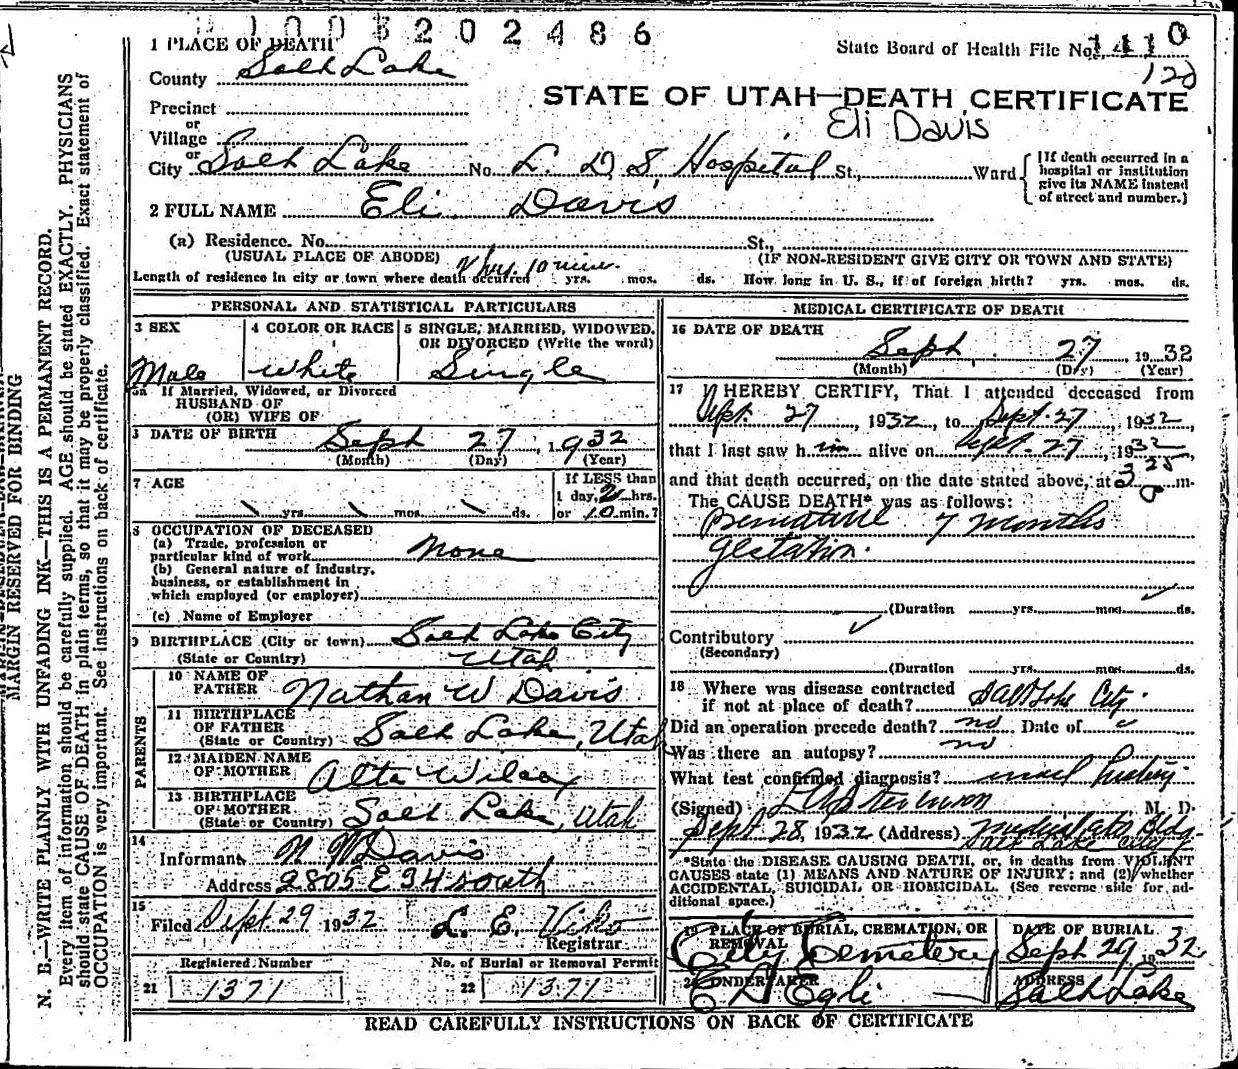 1003202486
1 PLACE OF DEATH
State Board of Health File No. 1410
County Salt Lake
122
Precinct
STATE OF UTAH—DEATH CERTIFICATE
or
Village
Eli Davis
or
City Salt Lake No. L. D. S. Hospital St., Ward
[If death occurred in a hospital or institution give its NAME instead of street and number.]
2 FULL NAME Eli Davis
(a) Residence. No. St.,
(USUAL PLACE OF ABODE) (IF NON-RESIDENT GIVE CITY OR TOWN AND STATE)
Length of residence in city or town where death occurred 2 hrs. 10 min. yrs. mos. ds. How long in U. S., if of foreign birth? yrs. mos. ds.
PERSONAL AND STATISTICAL PARTICULARS
3 SEX
Male
4 COLOR OR RACE
White
5 SINGLE, MARRIED, WIDOWED, OR DIVORCED (Write the word)
Single
5a If Married, Widowed, or Divorced
HUSBAND OF
(OR) WIFE OF
DATE OF BIRTH Sept 27, 1932
(Month) (Day) (Year)
7 AGE
yrs. mos. ds.
If LESS than
1 day, 2 hrs.
or 10 min.?
8 OCCUPATION OF DECEASED
(a) Trade, profession or
particular kind of work None
(b) General nature of industry,
business, or establishment in
which employed (or employer)
(c) Name of Employer
9 BIRTHPLACE (City or town) Salt Lake City
(State or Country) Utah
PARENTS
10 NAME OF
FATHER Nathan W Davis
11 BIRTHPLACE
OF FATHER
(State or Country) Salt Lake, Utah
12 MAIDEN NAME
OF MOTHER Alta Wilcox
13 BIRTHPLACE
OF MOTHER
(State or Country) Salt Lake, Utah
14
Informant N W Davis
Address 2805 E 34 South
15
Filed Sept. 29 1932 L. E. Viko
Registrar
Registered Number
21 1371
No. of Burial or Removal Permit
22 1371
MEDICAL CERTIFICATE OF DEATH
16 DATE OF DEATH
Sept. 27 1932
(Month) (Day) (Year)
17 I HEREBY CERTIFY, That I attended deceased from
Sept. 27, 1932, to Sept. 27, 1932,
that I last saw him alive on Sept. 27, 1932
and that death occurred, on the date stated above, at 3 25 p m.
The CAUSE DEATH* was as follows:
Premature 7 months
gestation.
(Duration yrs. mos. ds.
Contributory
(Secondary)
(Duration yrs. mos. ds.
18 Where was disease contracted
if not at place of death? Salt Lake City
Did an operation precede death? no Date of
Was there an autopsy? no
What test confirmed diagnosis?
(Signed) M. D.
Sept 28, 1932 (Address) Medical Arts Bldg.
Salt Lake City
*State the DISEASE CAUSING DEATH, or, in deaths from VIOLENT
CAUSES state (1) MEANS AND NATURE OF INJURY; and (2) whether
ACCIDENTAL, SUICIDAL OR HOMICIDAL. (See reverse side for ad-
ditional space.)
19 PLACE OF BURIAL, CREMATION, OR
REMOVAL
City Cemetery
DATE OF BURIAL
Sept 29, 1932
20 UNDERTAKER
E D Egli
ADDRESS
Salt Lake
READ CAREFULLY INSTRUCTIONS ON BACK OF CERTIFICATE
MARGIN RESERVED FOR BINDING
N. B.—WRITE PLAINLY WITH UNFADING INK—THIS IS A PERMANENT RECORD.
Every item of information should be carefully supplied. AGE should be stated EXACTLY. PHYSICIANS
should state CAUSE OF DEATH in plain terms, so that it may be properly classified. Exact statement of
OCCUPATION is very important. See instructions on back of certificate.